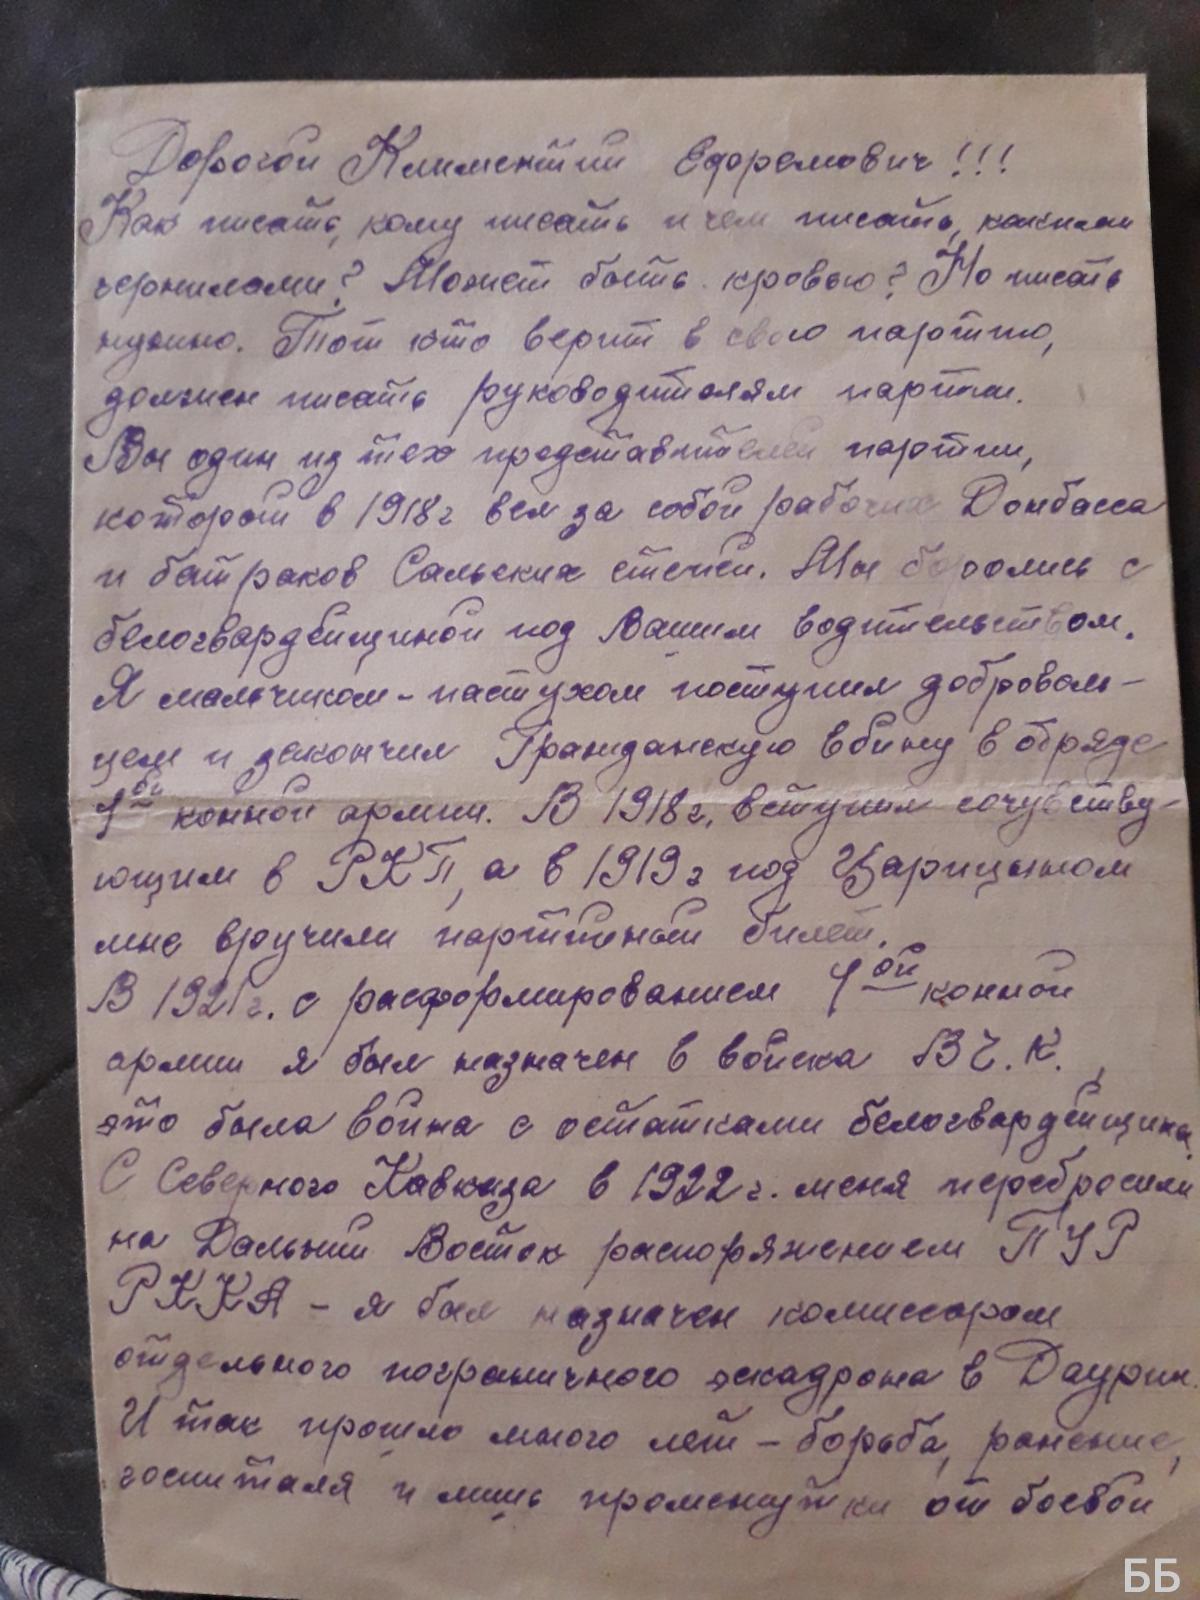 Дорогой Климентий Ефремович!!!
Как писать, кому писать и чем писать, какими
чернилами? Может быть кровью? Но писать
нужно. Тот кто верит в свою партию,
должен писать руководителям партии.
Вы один из тех представителей партии,
которой в 1918г вел за собой рабочих Донбасса
и батраков Сальских степей. Мы боролись с
белогвардейщиной под Вашим водительством.
Я мальчиком-пастухом поступил доброволь-
цем и закончил Гражданскую войну в обряде
1ой конной армии. В 1918г. вступил сочувству-
ющим в РКП, а в 1919г под Царицыном
мне вручили партийный билет.
В 1921г. с расформированием 1ой конной
армии я был назначен в войска ВЧ.К.,
это была война с остатками белогвардейщины.
С Северного Кавказа в 1922г. меня перебросили
на Дальний Восток распоряжением ПУР
РККА - я был назначен комиссаром
отдельного пограничного эскадрона в Даурии.
И так прошло много лет - борьба, ранение,
госпиталя и лишь промежутки от боевой
ББ